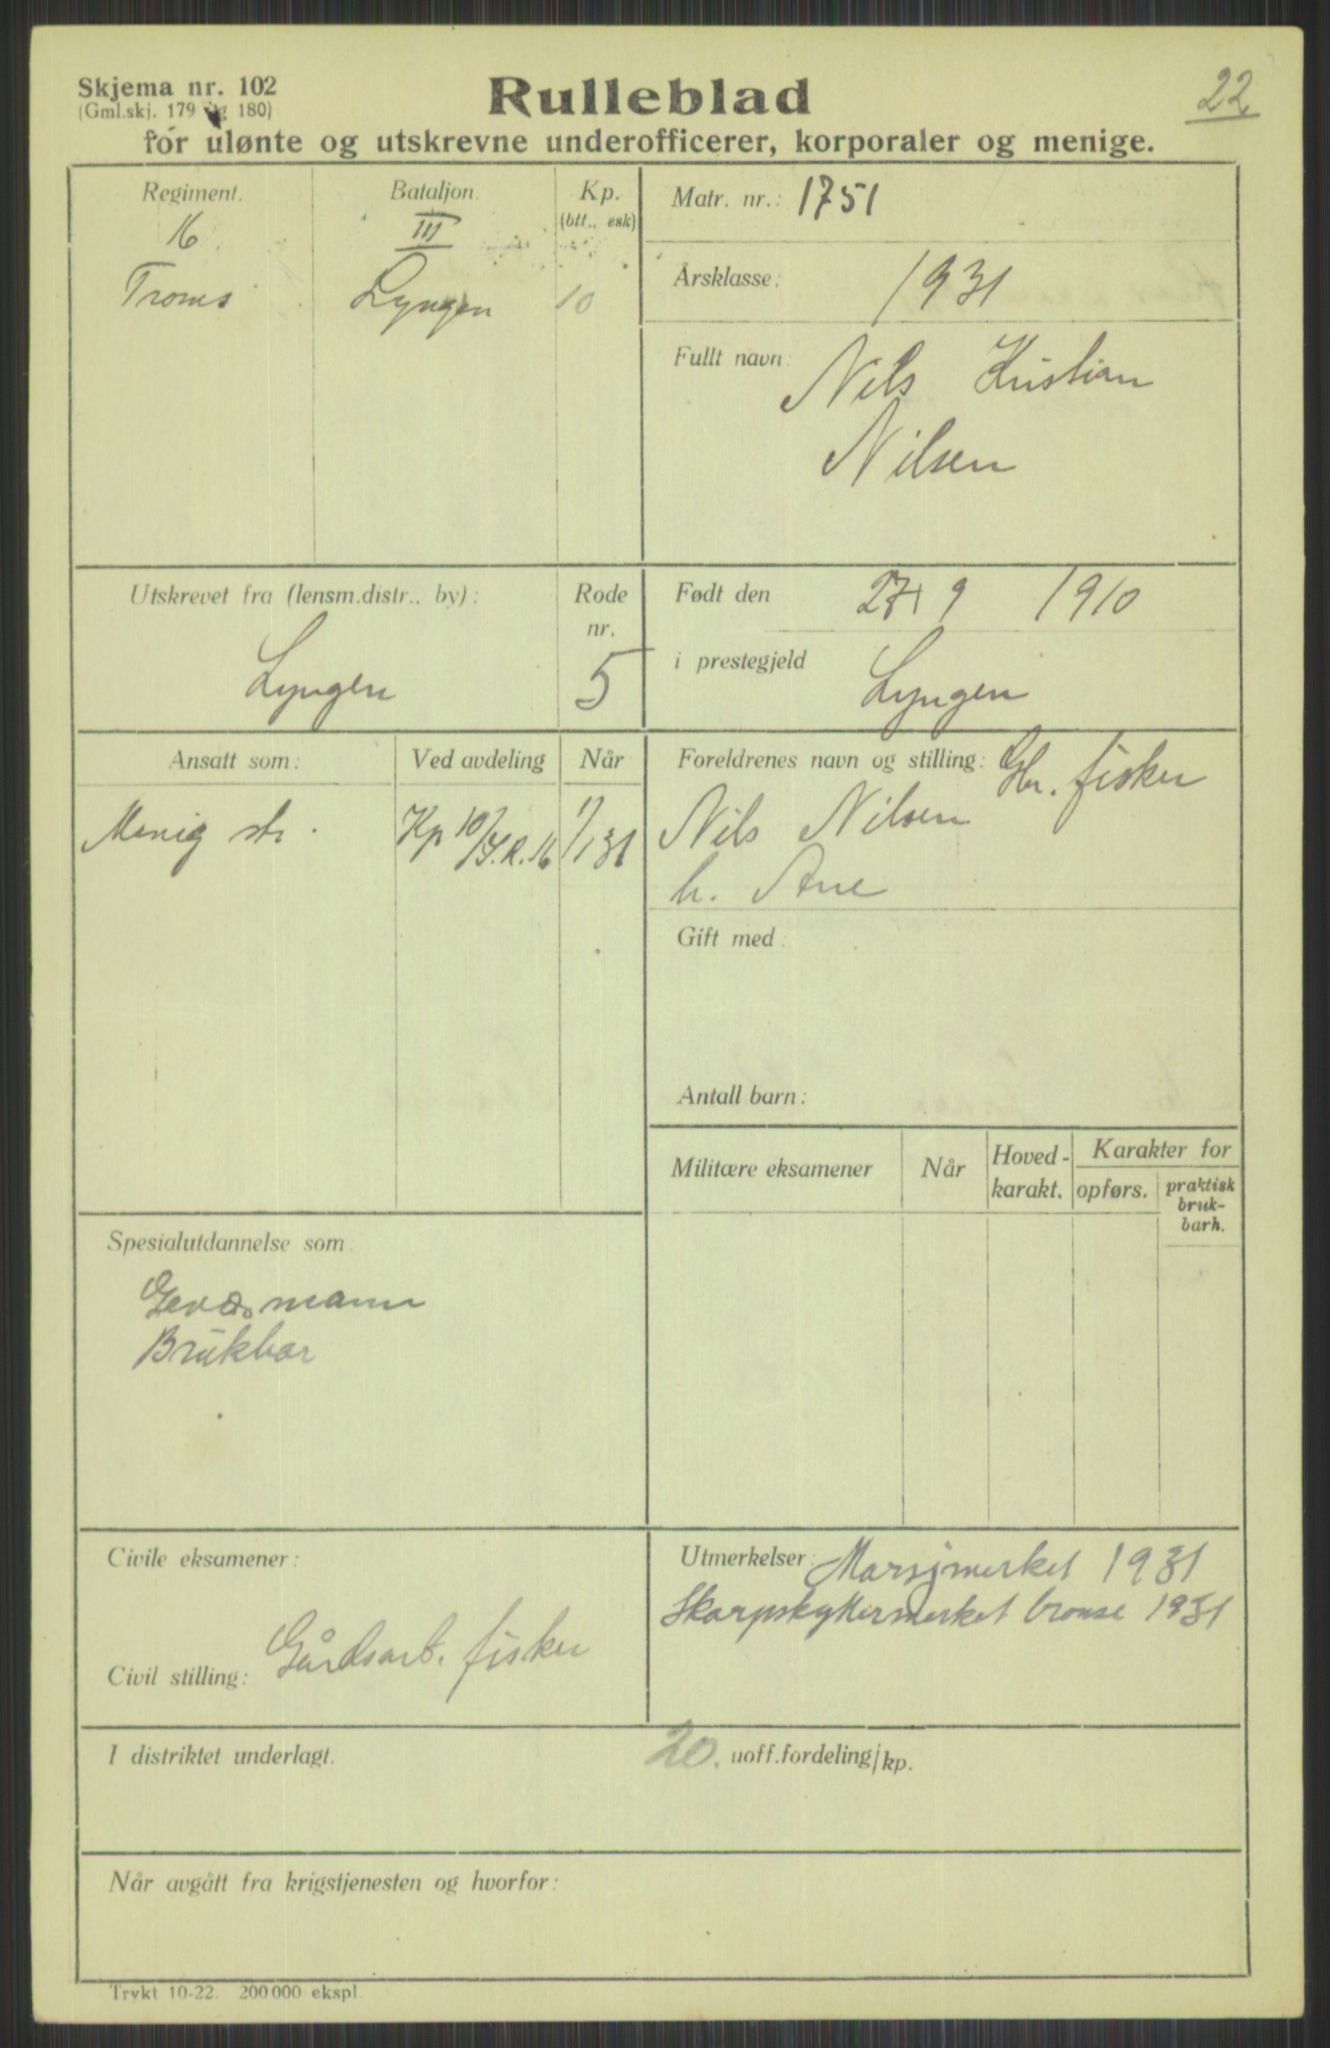 Skjema nr. 102
(Gml.skj. 179 og 180)
Rulleblad
22
for ulønte og utskrevne underofficerer, korporaler og menige.
Regiment.
16
Troms
Bataljon.
III
Lyngen
Kp.
(btt., esk)
10
Matr. nr.: 1751
Årsklasse: 1931
Fullt navn: Nils Kristian
Nilsen
Utskrevet fra (lensm.distr., by):
Lyngen
Rode
nr.
5
Født den 27 9 1910
i prestegjeld
Lyngen
Ansatt som:
Menig str.
Ved avdeling
Kp 10/I.R.16
Når
1/1 31
Foreldrenes navn og stilling: Gbr. fisker
Nils Nilsen
h. Ane
Gift med:
Antall barn:
Militære eksamener
Når
Hoved-
karakt.
Karakter for
opførs.
praktisk
bruk-
barh.
Spesialutdannelse som:
Geværmann
Brukbar
Civile eksamener:
Civil stilling: Gårdsarb. fisker
Utmerkelser: Marsjmerket 1931
Skarpskyttermerket bronse 1931
I distriktet underlagt.
20. uoff.fordeling/kp.
Når avgått fra krigstjenesten og hvorfor:
Trykt 10-22. 200 000 ekspl.